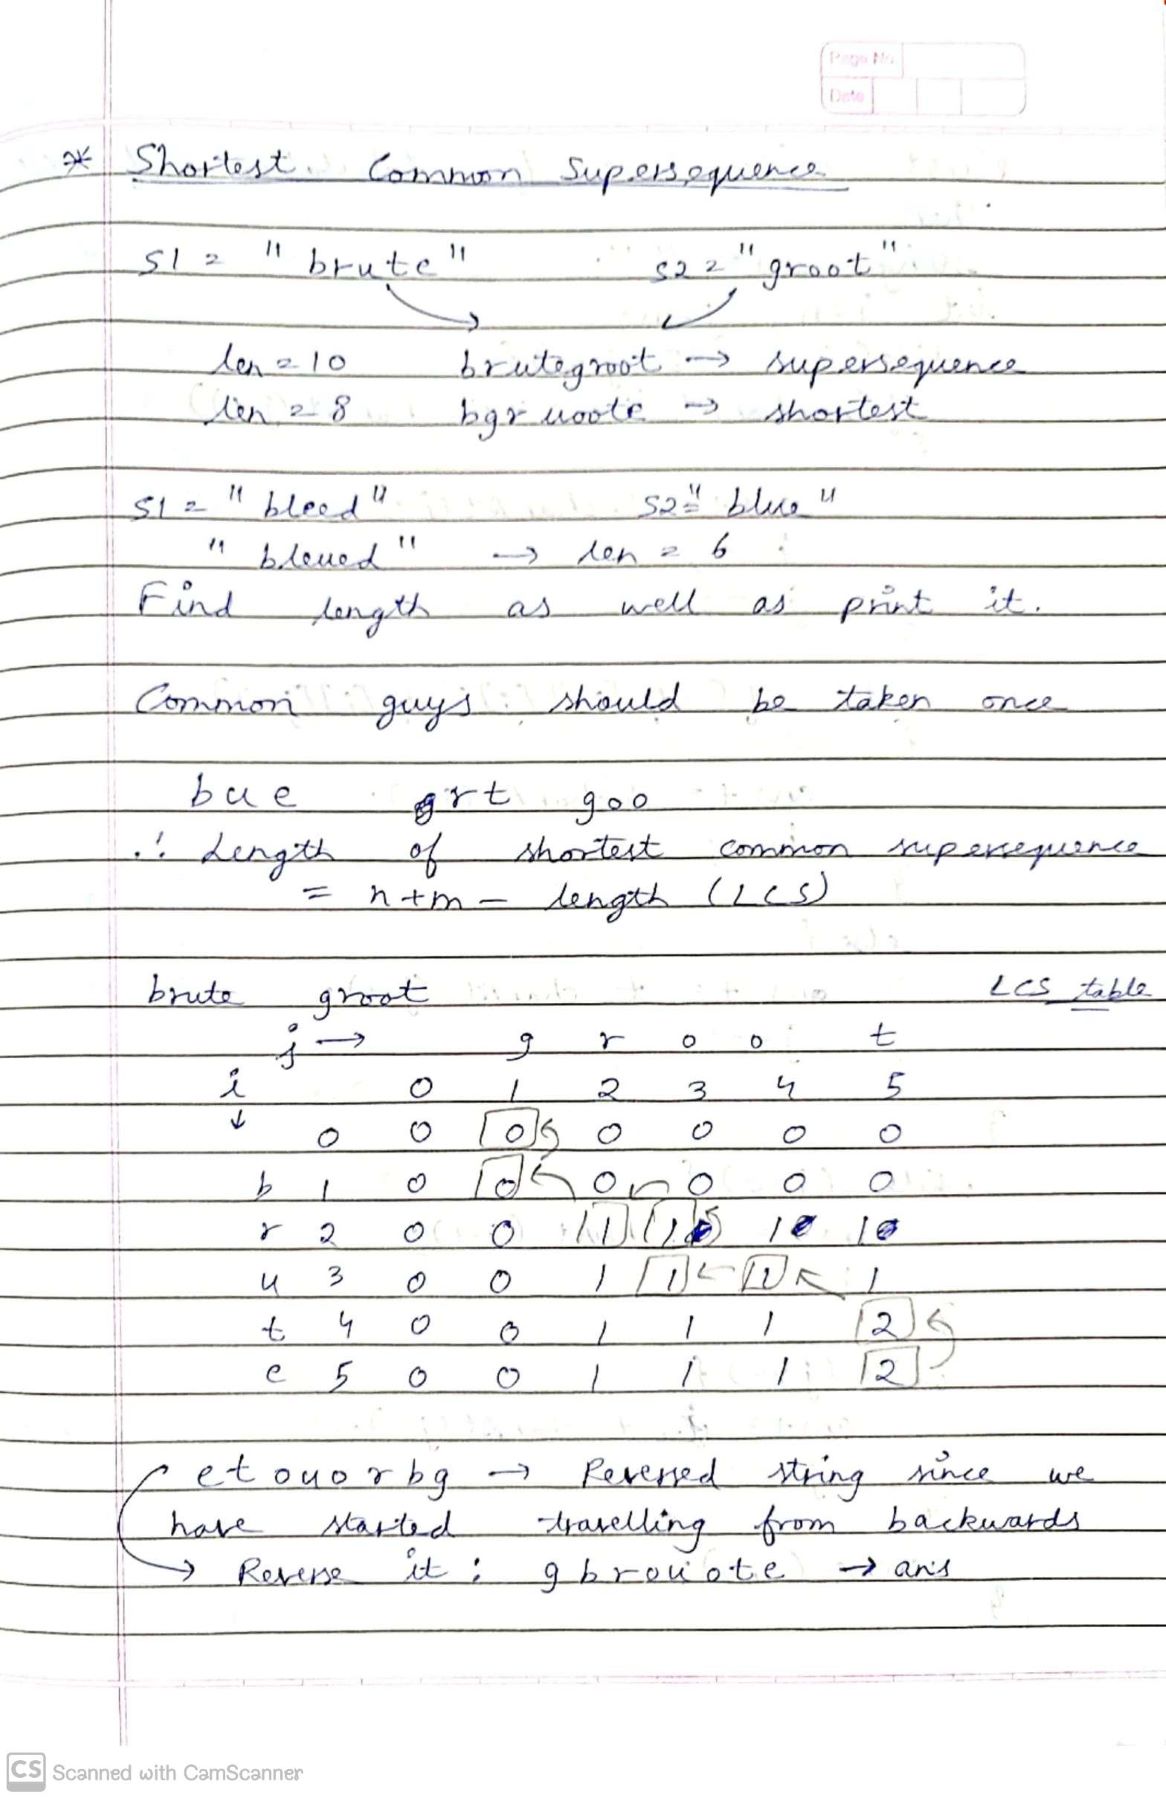 Page No.
Date
* Shortest Common Supersequence
S1 = "brute" S2 = "groot"
len = 10 brutegroot → supersequence
len = 8 bgruoote → shortest
S1 = "bleed" S2 = "blue"
"bleued" → len = 6
Find length as well as print it.
Common guys should be taken once
bue grt goo
∴ Length of shortest common supersequence
= n+m - length (LCS)
brute groot LCS table
j → g r o o t
i 0 1 2 3 4 5
↓ 0 0 0 0 0 0 0
b 1 0 0 0 0 0 0
r 2 0 0 1 1 1 1
u 3 0 0 1 1 1 1
t 4 0 0 1 1 1 2
e 5 0 0 1 1 1 2
etouorbg → Reversed string since we
have started travelling from backwards
→ Reverse it : gbrouote → ans
CS Scanned with CamScanner